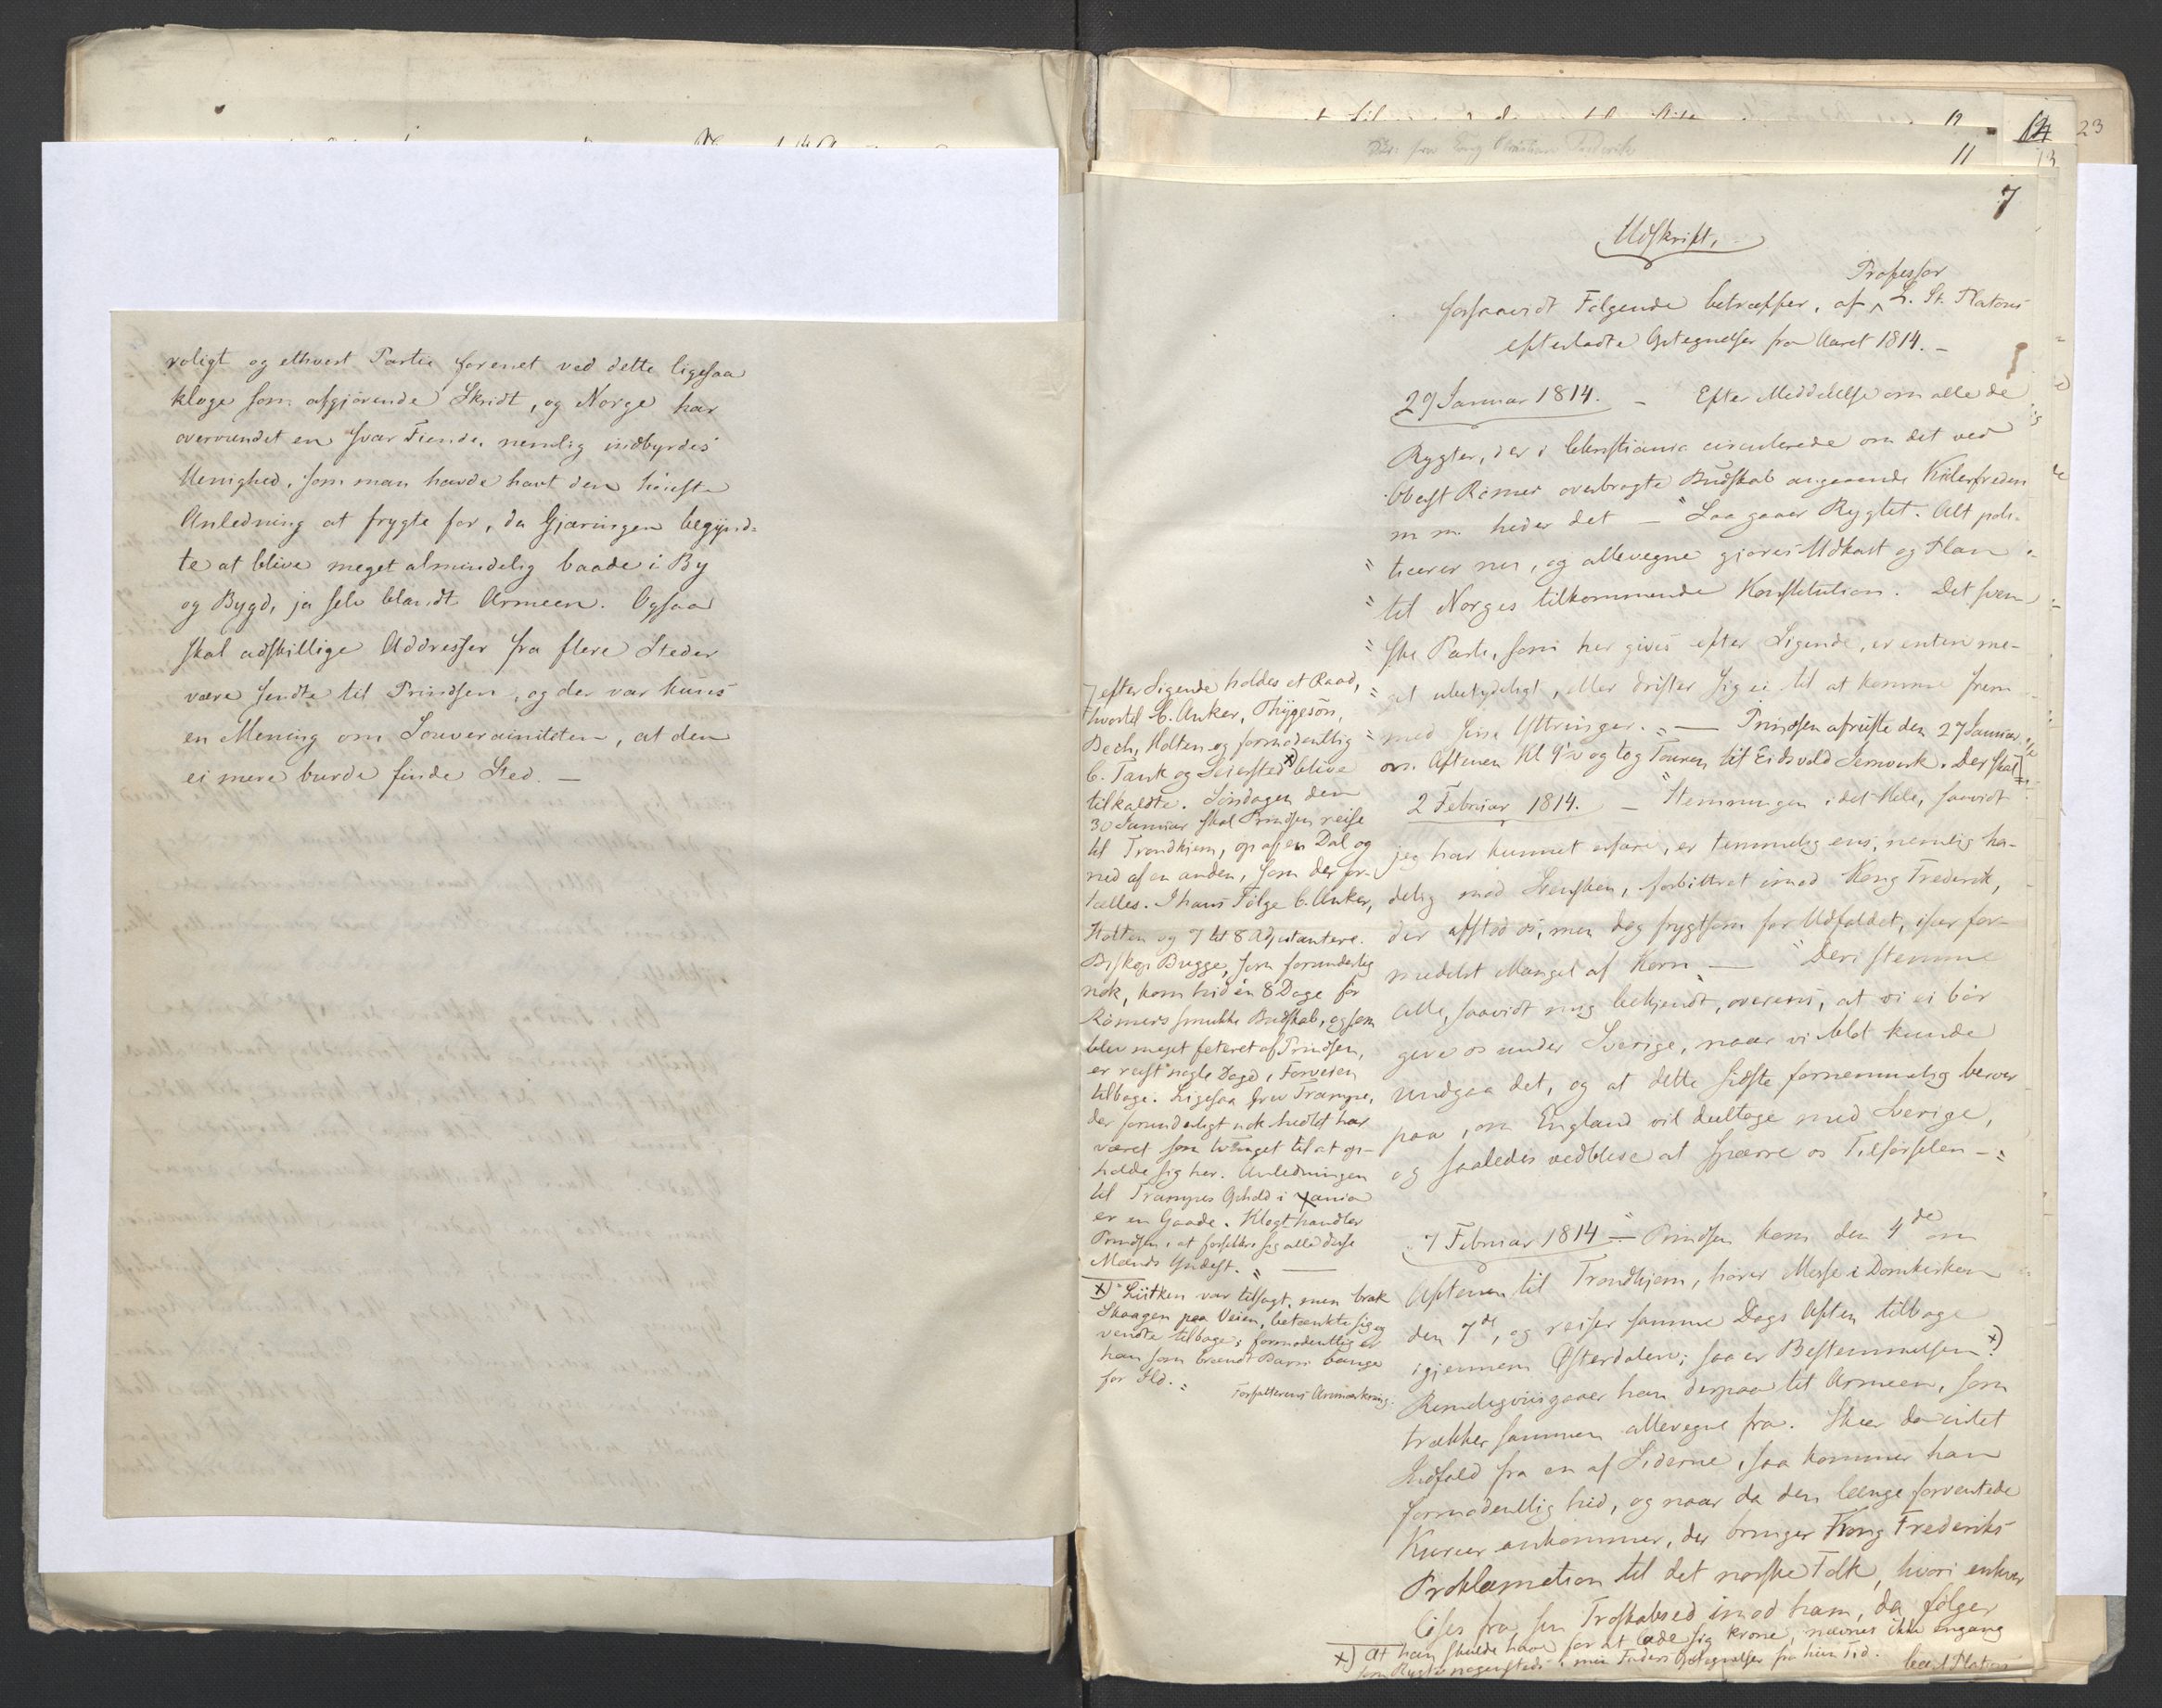 roligt og ethvert Partie forenet ved dette ligesaa
kloge som afgjørende Skridt, og Norge har
overvundet en svær Fiende, nemlig indbyrdes
Uenighed, som man havde havt den høieste
Anledning at frygte for, da Gjæringen begynd-
te at blive meget almindelig baade i By
og Bygd, ja selv blandt Armeen. Ogsaa
skal adskillige Addresser fra flere Steder
være sendte til Prindsen, og der var kuns
en Mening om Souverainiteten, at den
ei mere burde finde Sted. —
12
14
23
11
13
7
Udskrift,
Professor
forsaavidt Følgende betræffer, af ^ L. St. Platous
efterladte Optegnelser fra Aaret 1814. –
29 Januar 1814. – Efter Meddelelse om alle de
Rygter, der i Christiania circulerede om det ved
Oberst Rømer overbragte Budskab angaaende Kielerfreden
m m. heder det – "Saa gaaer Rygtet. Alt poli-
" ticerer nu, og allevegne gjøres Udkast og Plan
" til Norges tilkommende Konstitution. Det sven-
" ske Parti, som her gives efter Sigende, er enten me-
" get ubetydeligt, eller drister sig ei til at komme frem
" med sine Yttringer." — Prindsen afreiste den 27 Januar
om Aftenen Kl 9½ og tog Touren til Eidsvold Jernverk. Der skal
efter Sigende holdes et Raad,
hvortil C. Anker, Thygeson,
Bech, Holten og formodentlig
C. Tank og Seiersted x) blive
tilkaldte. Søndagen den
30 Januar skal Prindsen reise
til Trondhjem, op af en Dal og
ned af en anden, som der for-
tælles. I hans Følge C. Anker,
Holten og 7 til 8 Adjutantere.
Biskop Bugge, som forunderlig
nok, kom hid en 8 Dage før
Rømers smukke Budskab, og som
blev meget feteret af Prindsen,
er reist nogle Dage i Forveien
tilbage. Ligesaa Grev Trampe,
der forunderligt nok hidtil har
været som tvunget til at op-
holde sig her. Anledningen
til Trampes Ophold i Xania
er en Gaade. Klogt handler
Prindsen, at forsikkre sig alle disse
Mænds Yndest." —
x) "Lütken var tilsagt, men brak
Skaagen paa Veien, betænkte sig og
vendte tilbage; formodentlig er
han som brændt Barn bange
for Ild."
Forfatterens Anmærkning.
2 Februar 1814. – "Stemningen i det Hele, saavidt
jeg har kunnet erfare, er temmelig ens, nemlig ha-
delig mod Svensken, forbittret imod Kong Frederik,
der afstod os, men dog frygtsom for Udfaldet, især for-
medelst Mangel af Korn" — "Deri stemme
Alle, saavidt mig bekjendt, overens, at vi ei bør
give os under Sverige, naar vi blot kunde
undgaa det, og at dette sidste fornemmelig beroer
paa, om England vil deeltage med Sverige,
og saaledes vedblive at spærre os Tilførselen –"
7 Februar 1814 – "Prindsen kom den 4de om
Aftenen til Trondhjem, hører Messe i Domkirken
den 7de, og reiser samme Dags Aften tilbage
igjennem Østerdalen; saa er Bestemmelsen. x)
Rimeligviis gaaer han derpaa til Armeen, som
trækker sammen allevegne fra. Skeer da intet
Indfald fra en af Siderne, saa kommer han
formodentlig hid, og naar da den længe forventede
Kureer ankommer, der bringer Kong Frederiks
Proklamation til det norske Folk, hvori enhver
løses fra sin Troskabsed imod ham, da følger
x) At han skulde have for at lade sig krone, nævnes ikke engang
som Rygte nogensteds i min Faders Optegnelser fra hiin Tid. Carl Platou